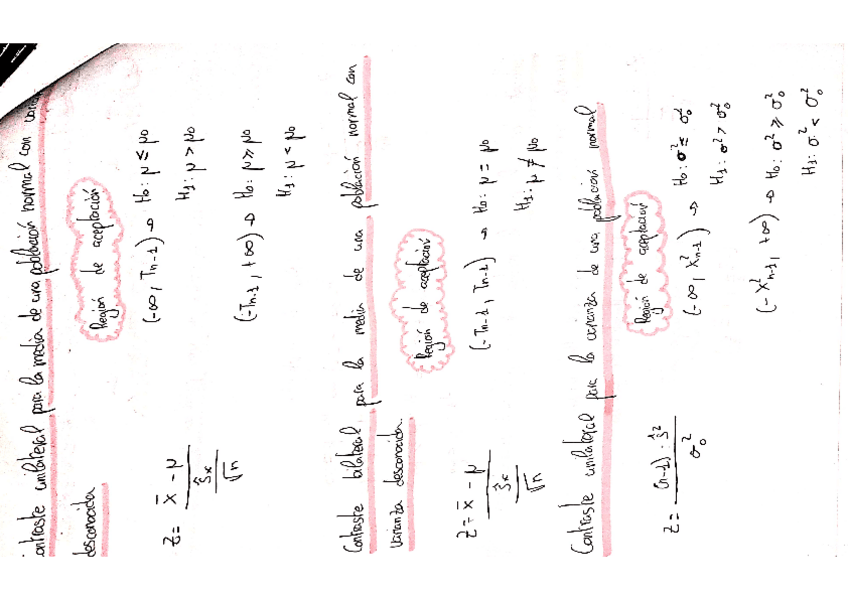 Contraste unilateral para la media de una población normal con
desconocida.
Región de aceptación
Z = x̄ - μ / ŝx / √n
(-∞, Tn-1) → H0: μ ≤ μ0
H1: μ > μ0
(-Tn-1, +∞) → H0: μ ≥ μ0
H1: μ < μ0
Contraste bilateral para la media de una población normal con
varianza desconocida.
Región de aceptación
Z = x̄ - μ / ŝx / √n
(-Tn-1, Tn-1) → H0: μ = μ0
H1: μ ≠ μ0
Contraste unilateral para la varianza de una población normal
Región de aceptación
Z = (n-1) · ŝ² / σ0²
(-∞, X²n-1) → H0: σ² ≤ σ0²
H1: σ² > σ0²
(-X²n-1, +∞) → H0: σ² ≥ σ0²
H1: σ² < σ0²